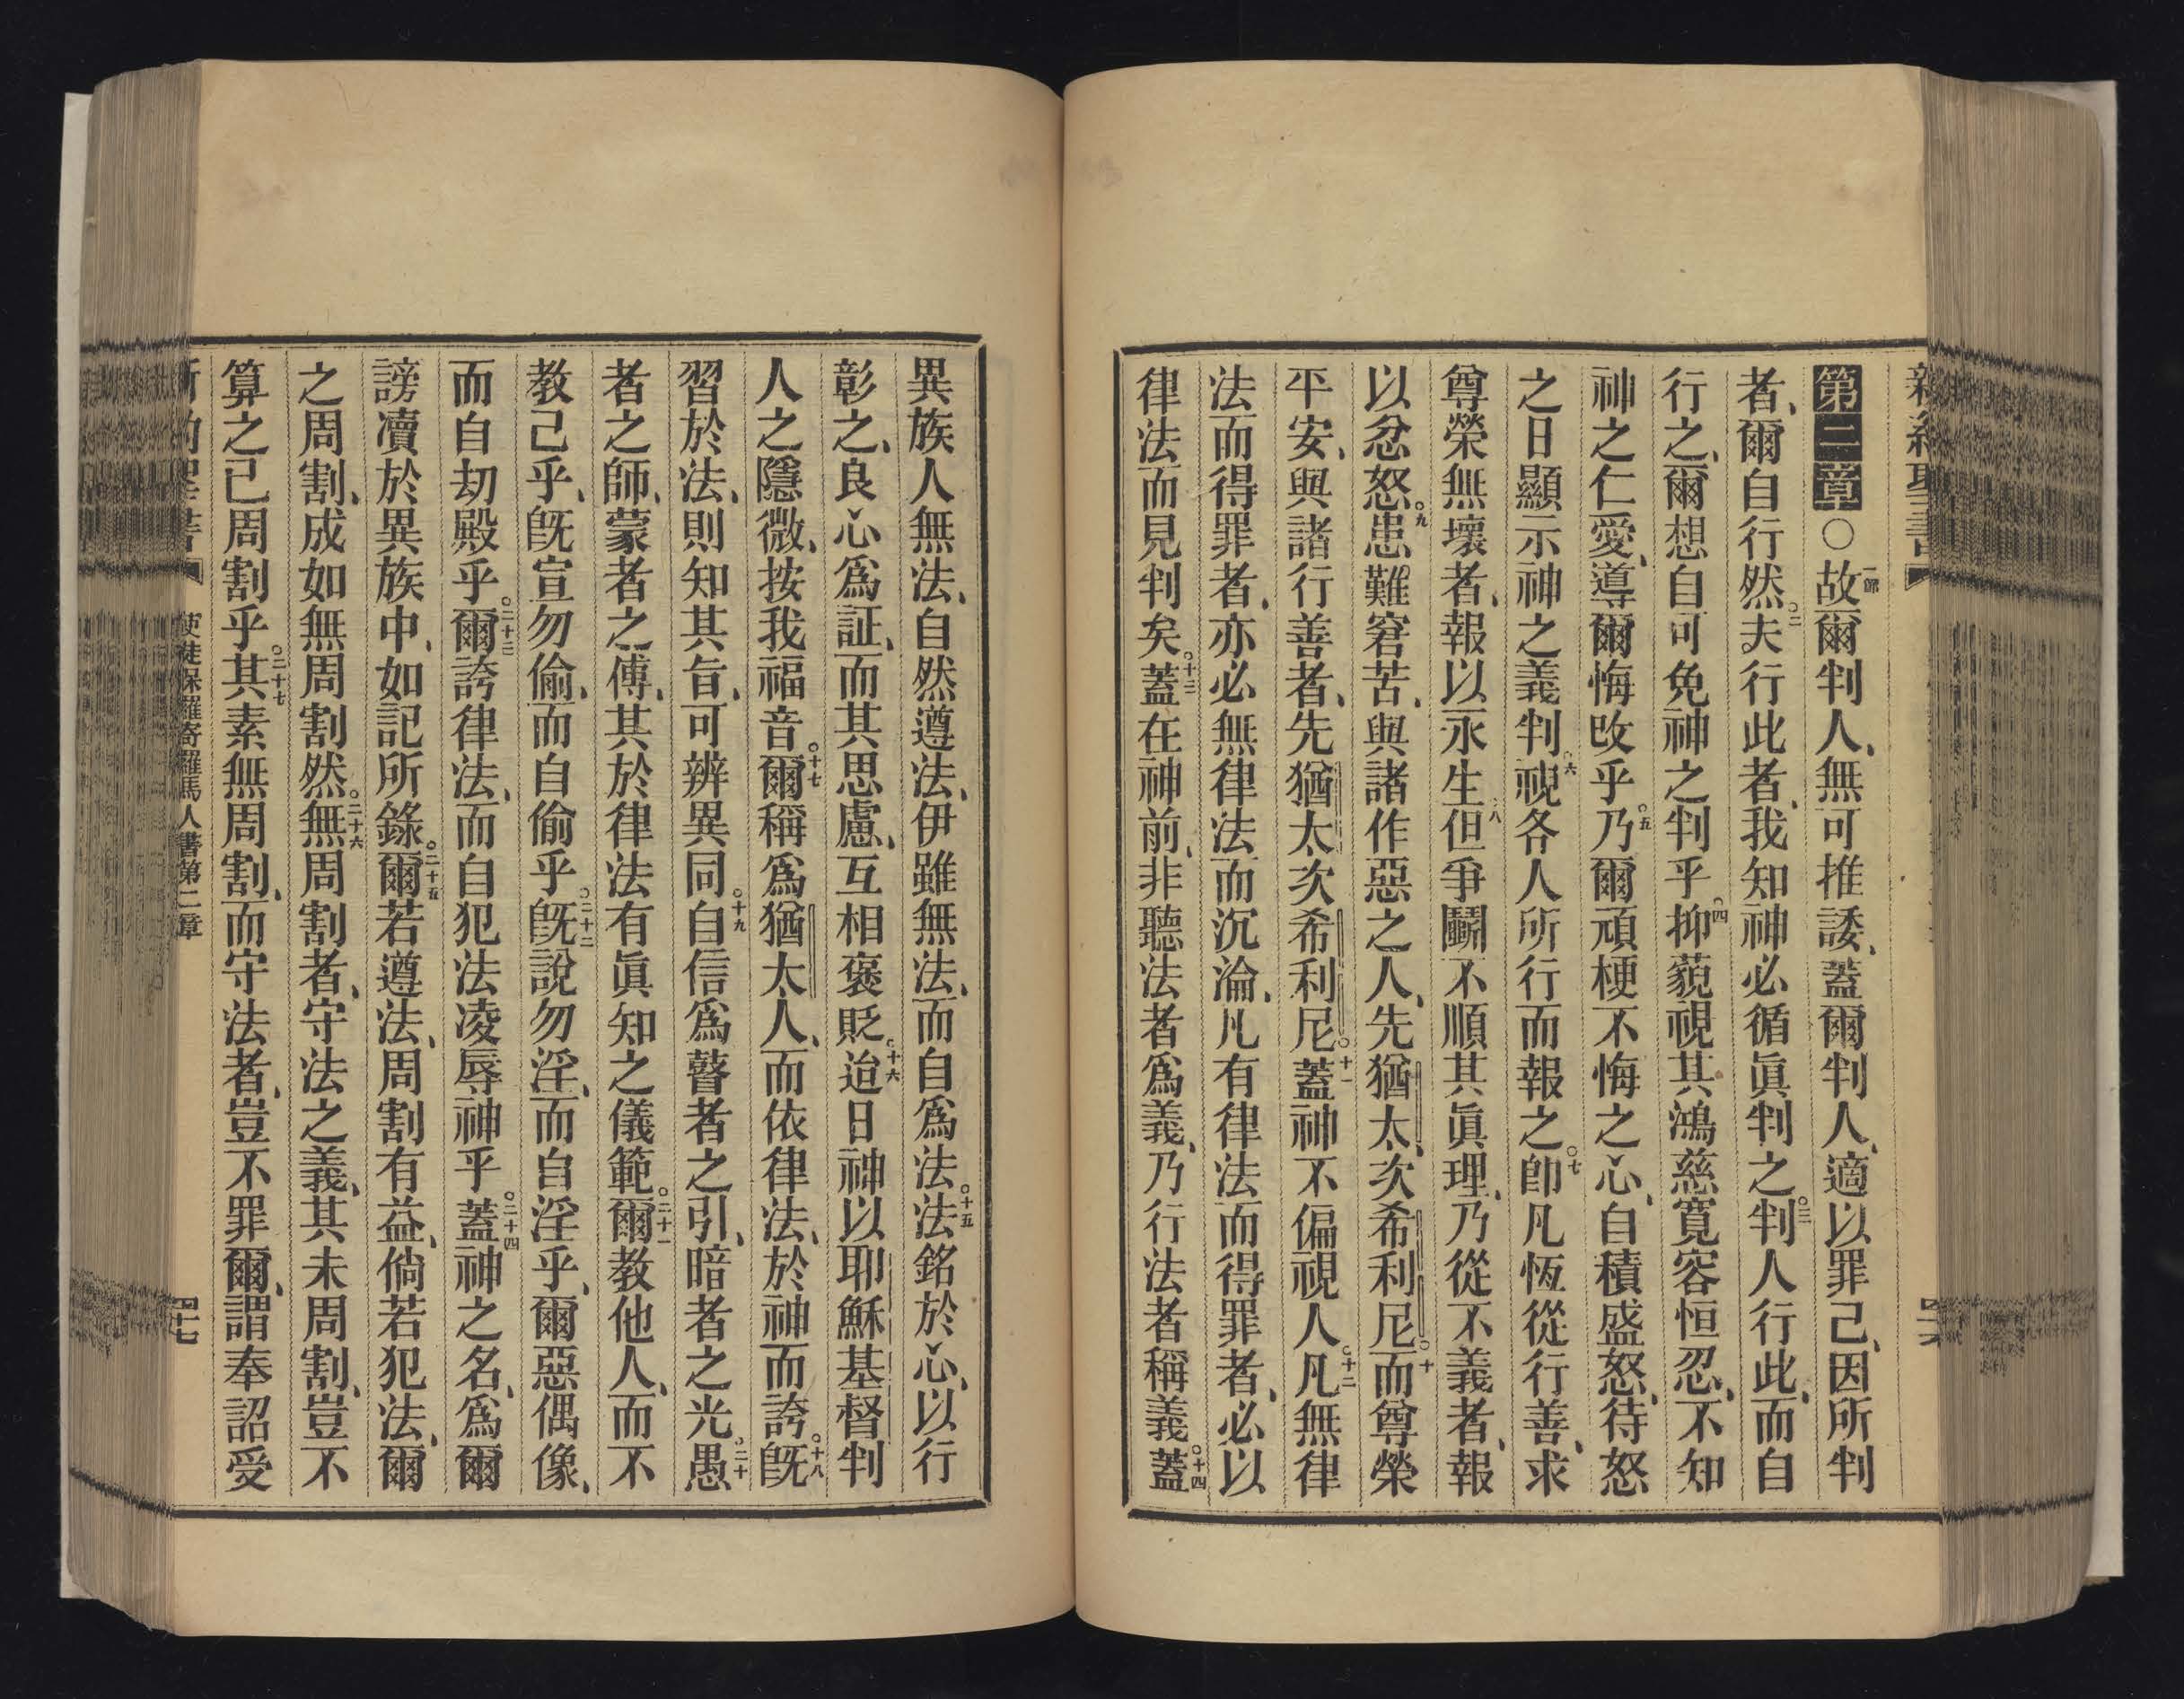 新約聖書
第二章○一節故爾判人、無可推諉、蓋爾判人、適以罪己、因所判
者、爾自行然。二夫行此者、我知神必循眞判之。三判人行此、而自
行之、爾想自可免神之判乎。四抑藐視其鴻慈寬容恒忍、不知
神之仁愛、導爾悔改乎。五乃爾頑梗不悔之心、自積盛怒、待怒
之日顯示神之義判。六視各人所行而報之。七卽凡恆從行善、求
尊榮無壞者、報以永生。八但爭鬭不順其眞理、乃從不義者、報
以忿怒。九患難窘苦、與諸作惡之人、先猶太、次希利尼。十而尊榮
平安、與諸行善者、先猶太次希利尼。十一蓋神不偏視人。十二凡無律
法而得罪者、亦必無律法而沉淪、凡有律法而得罪者、必以
律法而見判矣。十三蓋在神前、非聽法者爲義、乃行法者稱義。十四蓋
異族人無法、自然遵法、伊雖無法、而自爲法。十五法銘於心、以行
彰之、良心爲証、而其思慮、互相褒貶。十六迨日神以耶穌基督判
人之隱微、按我福音。十七爾稱爲猶太人、而依律法、於神而誇。十八旣
習於法、則知其旨、可辨異同。十九自信爲瞽者之引、暗者之光。二十愚
者之師、蒙者之傅、其於律法有眞知之儀範。二十一爾教他人、而不
教己乎、旣宣勿偷、而自偷乎。二十二旣說勿淫、而自淫乎、爾惡偶像、
而自刧殿乎。二十三爾誇律法、而自犯法凌辱神乎。二十四蓋神之名、爲爾
謗瀆於異族中、如記所錄。二十五爾若遵法、周割有益、倘若犯法、爾
之周割、成如無周割然。二十六無周割者、守法之義、其未周割、豈不
算之已周割乎。二十七其素無周割、而守法者、豈不罪爾、謂奉詔受
新約聖書 使徒保羅寄羅馬人書第二章 四十七